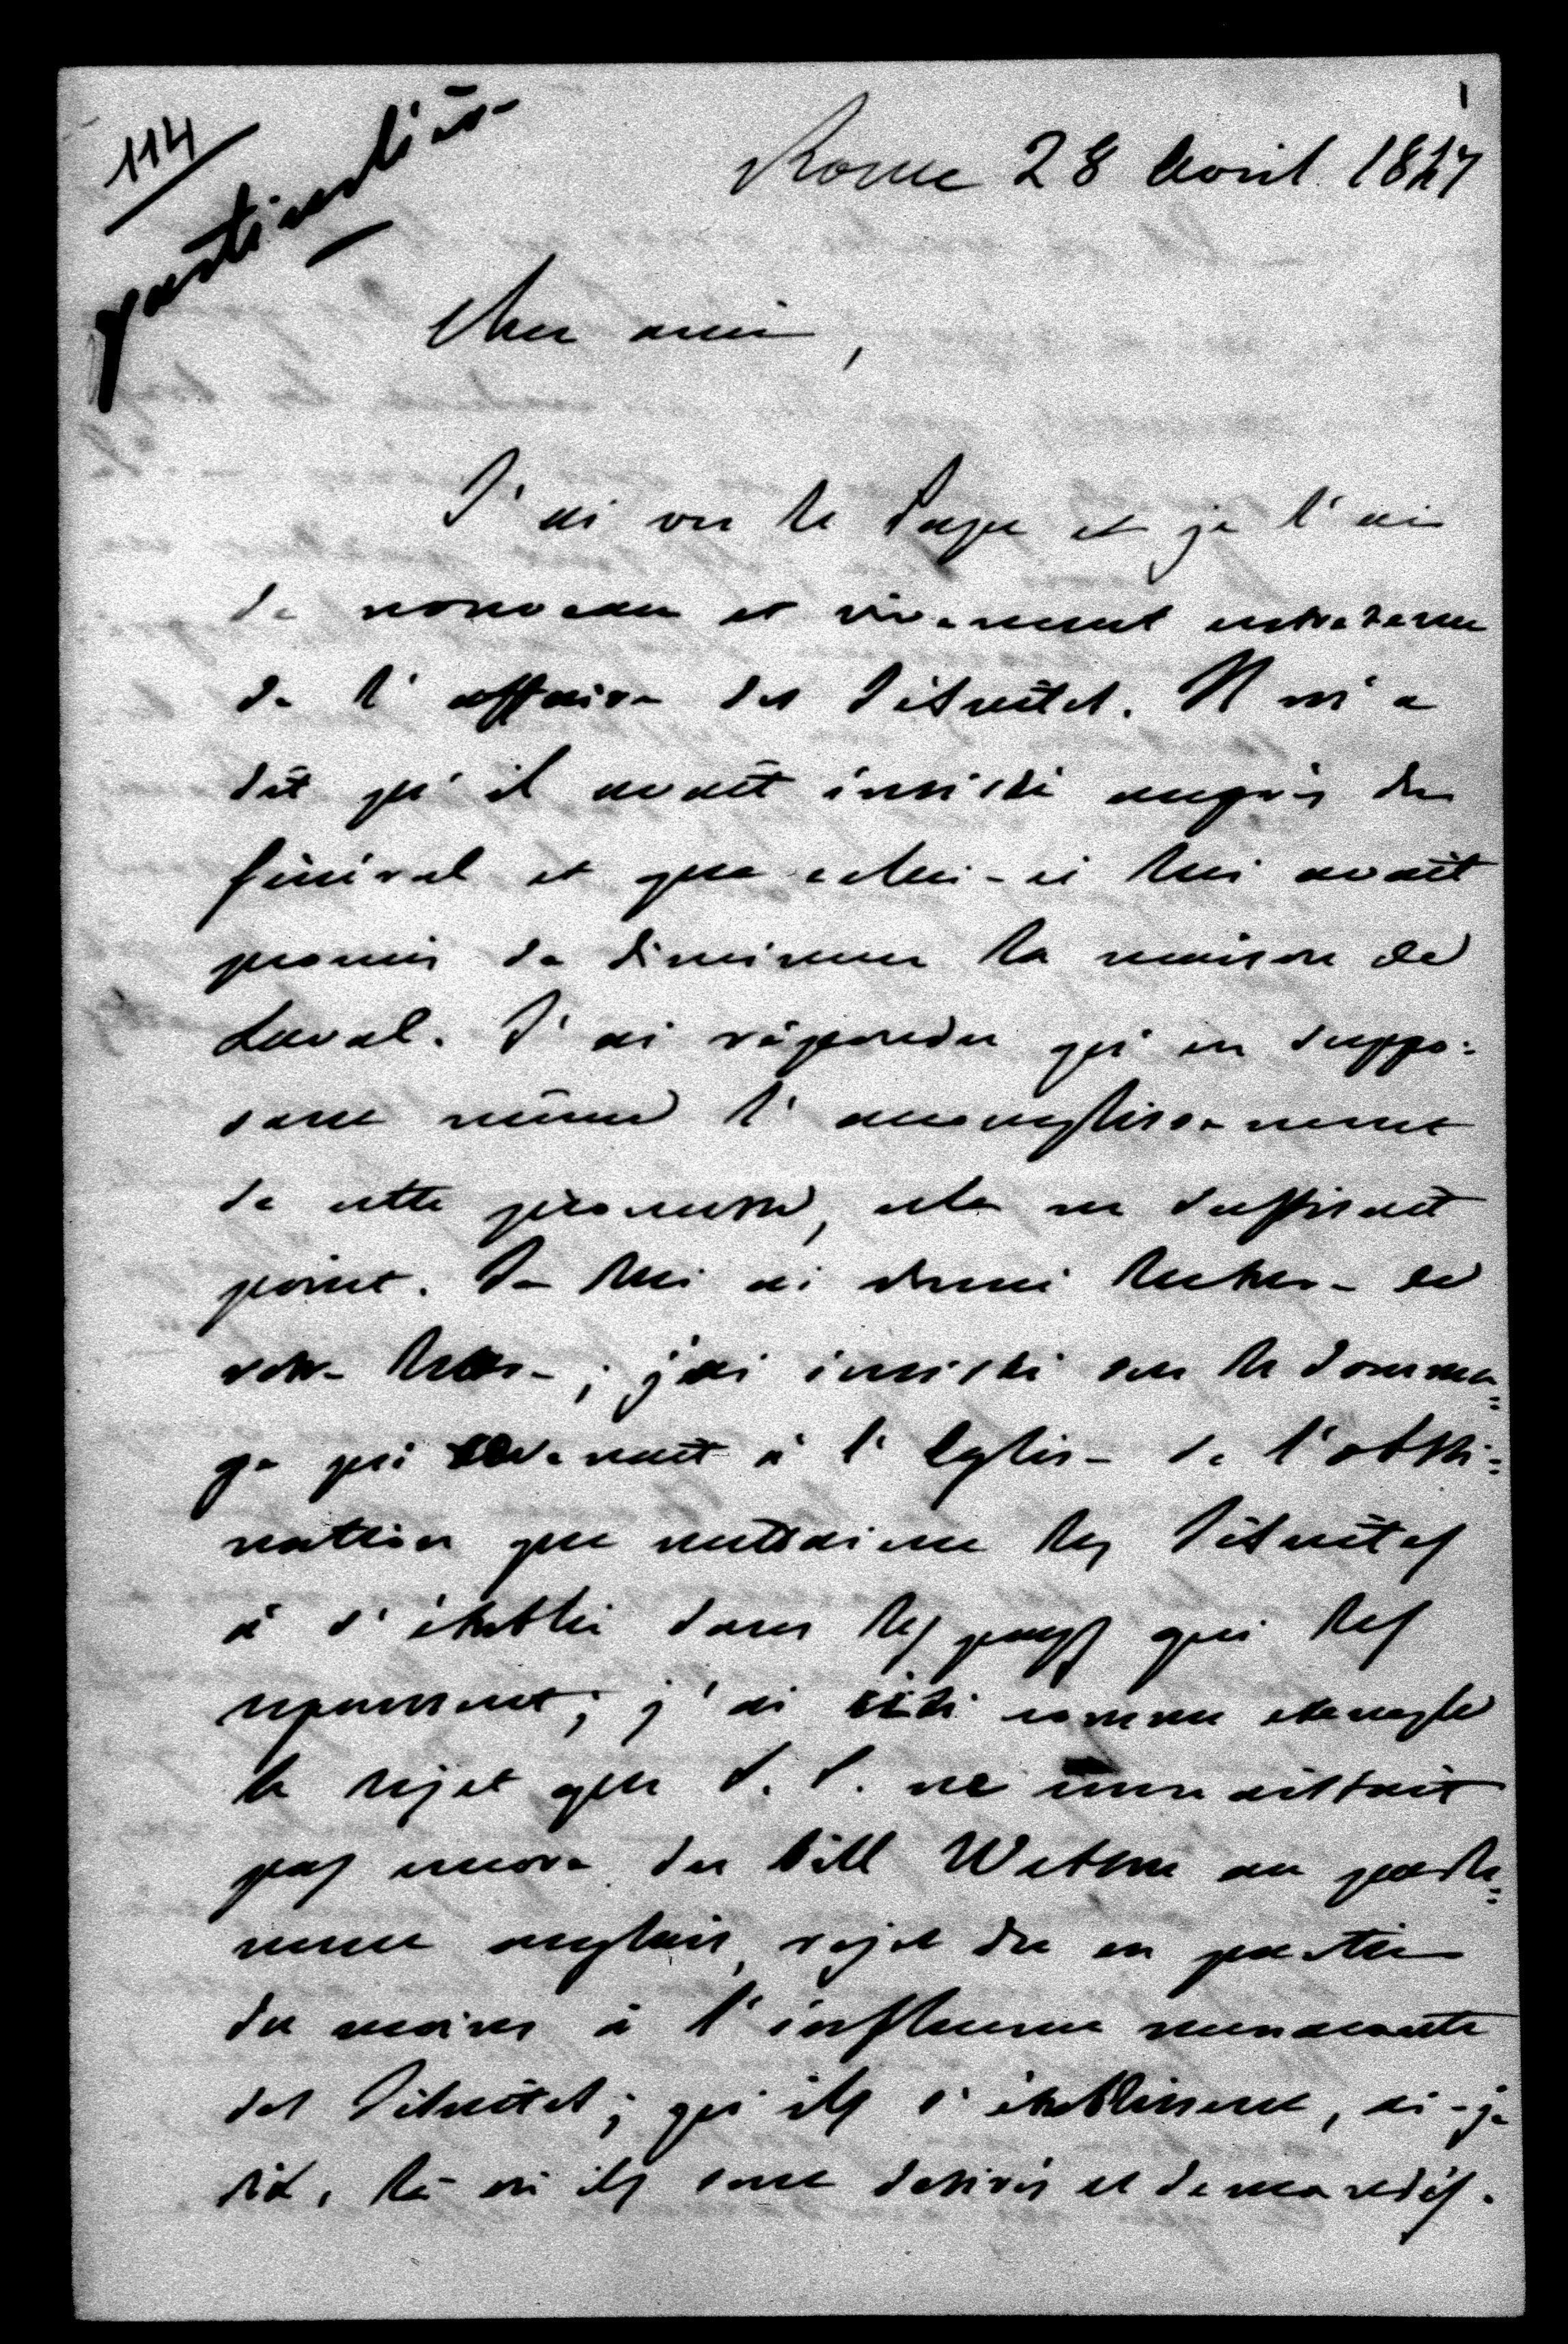 114
particulière
1
Rome 28 Avril 1847
Cher ami,
J'ai vu le Pape et je l'ai
de nouveau et vivement entretenu
de l'affaire des Jésuites. Il m'a
dit qu'il avait insisté auprès du
général et que celui-ci lui avait
promis de diminuer la maison de
Laval. J'ai répondu qu'en suppo=
sant même l'accomplissement
de cette promesse, cela ne suffisait
point. Je lui ai donné lecture de
votre lettre; j'ai insisté sur le domma=
ge qui revenait à l'Eglise de l'obsti=
nation que mettaient les Jésuites
à s'établir dans les pays qui les
repoussent; j'ai cité comme exemple
le rejet que S. S. ne connaissait
pas encore du bill Watson au parle=
ment anglais, rejet du en partie
du moins à l'influence menaçante
des Jésuites; qu'ils s'établissent, ai-je
dit, là où ils sont desirés et demandés.